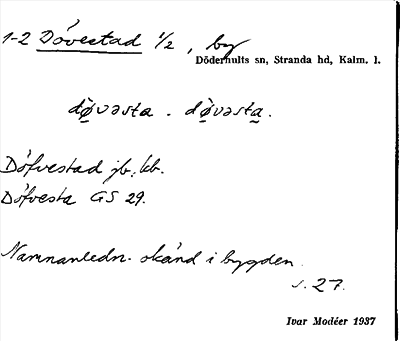 1-2 Dövestad 1/2, by
Döderhults sn, Stranda hd, Kalm. l.
dø̀vəsta . dø̀vəsta.
Döfvestad jb, kb.
Döfvesta GS 29.
Namnanledn. okänd i bygden.
s. 27.
Ivar Modéer 1937